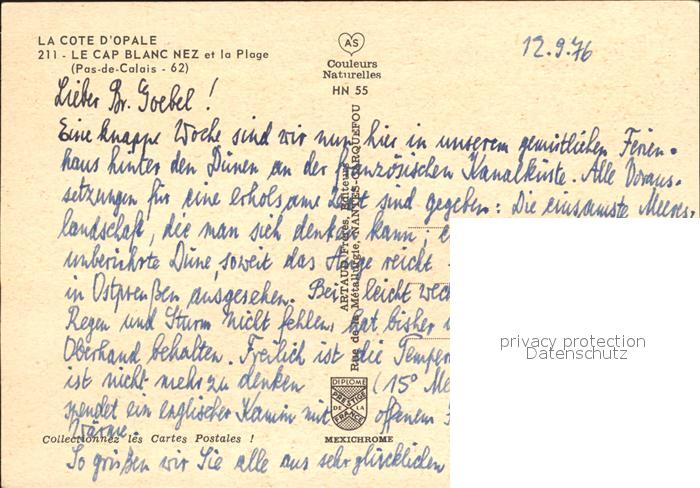 LA COTE D'OPALE
211 - LE CAP BLANC NEZ et la Plage
(Pas-de-Calais - 62)
AS
Couleurs
Naturelles
HN 55
12.9.76
Lieber Br. Goebel!
Eine knappe Woche sind wir nun hier in unserem gemütlichen Ferien-
haus hinter den Dünen an der französischen Kanalküste. Alle Voraus-
setzungen für eine erholsame Zeit sind gegeben: Die einsamste Meeres-
landschaft, die man sich denken kann,
unberührte Düne, soweit das Auge reicht
in Ostpreußen ausgesehen. Bei leicht
Regen und Sturm nicht fehlen, hat bisher
Oberhand behalten. Freilich ist die
ist nicht mehr zu denken (15°
spendet ein englischer Kamin mit offenem
Wärme.
So grüßen wir Sie alle aus sehr glücklichen
ARTAUD Frères, Editeurs
Rue de la Métallurgie, NANTES-CARQUEFOU
DIPLOME
PRESTIGE
DE LA
FRANCE
MEXICHROME
Collectionnez les Cartes Postales !
privacy protection
Datenschutz